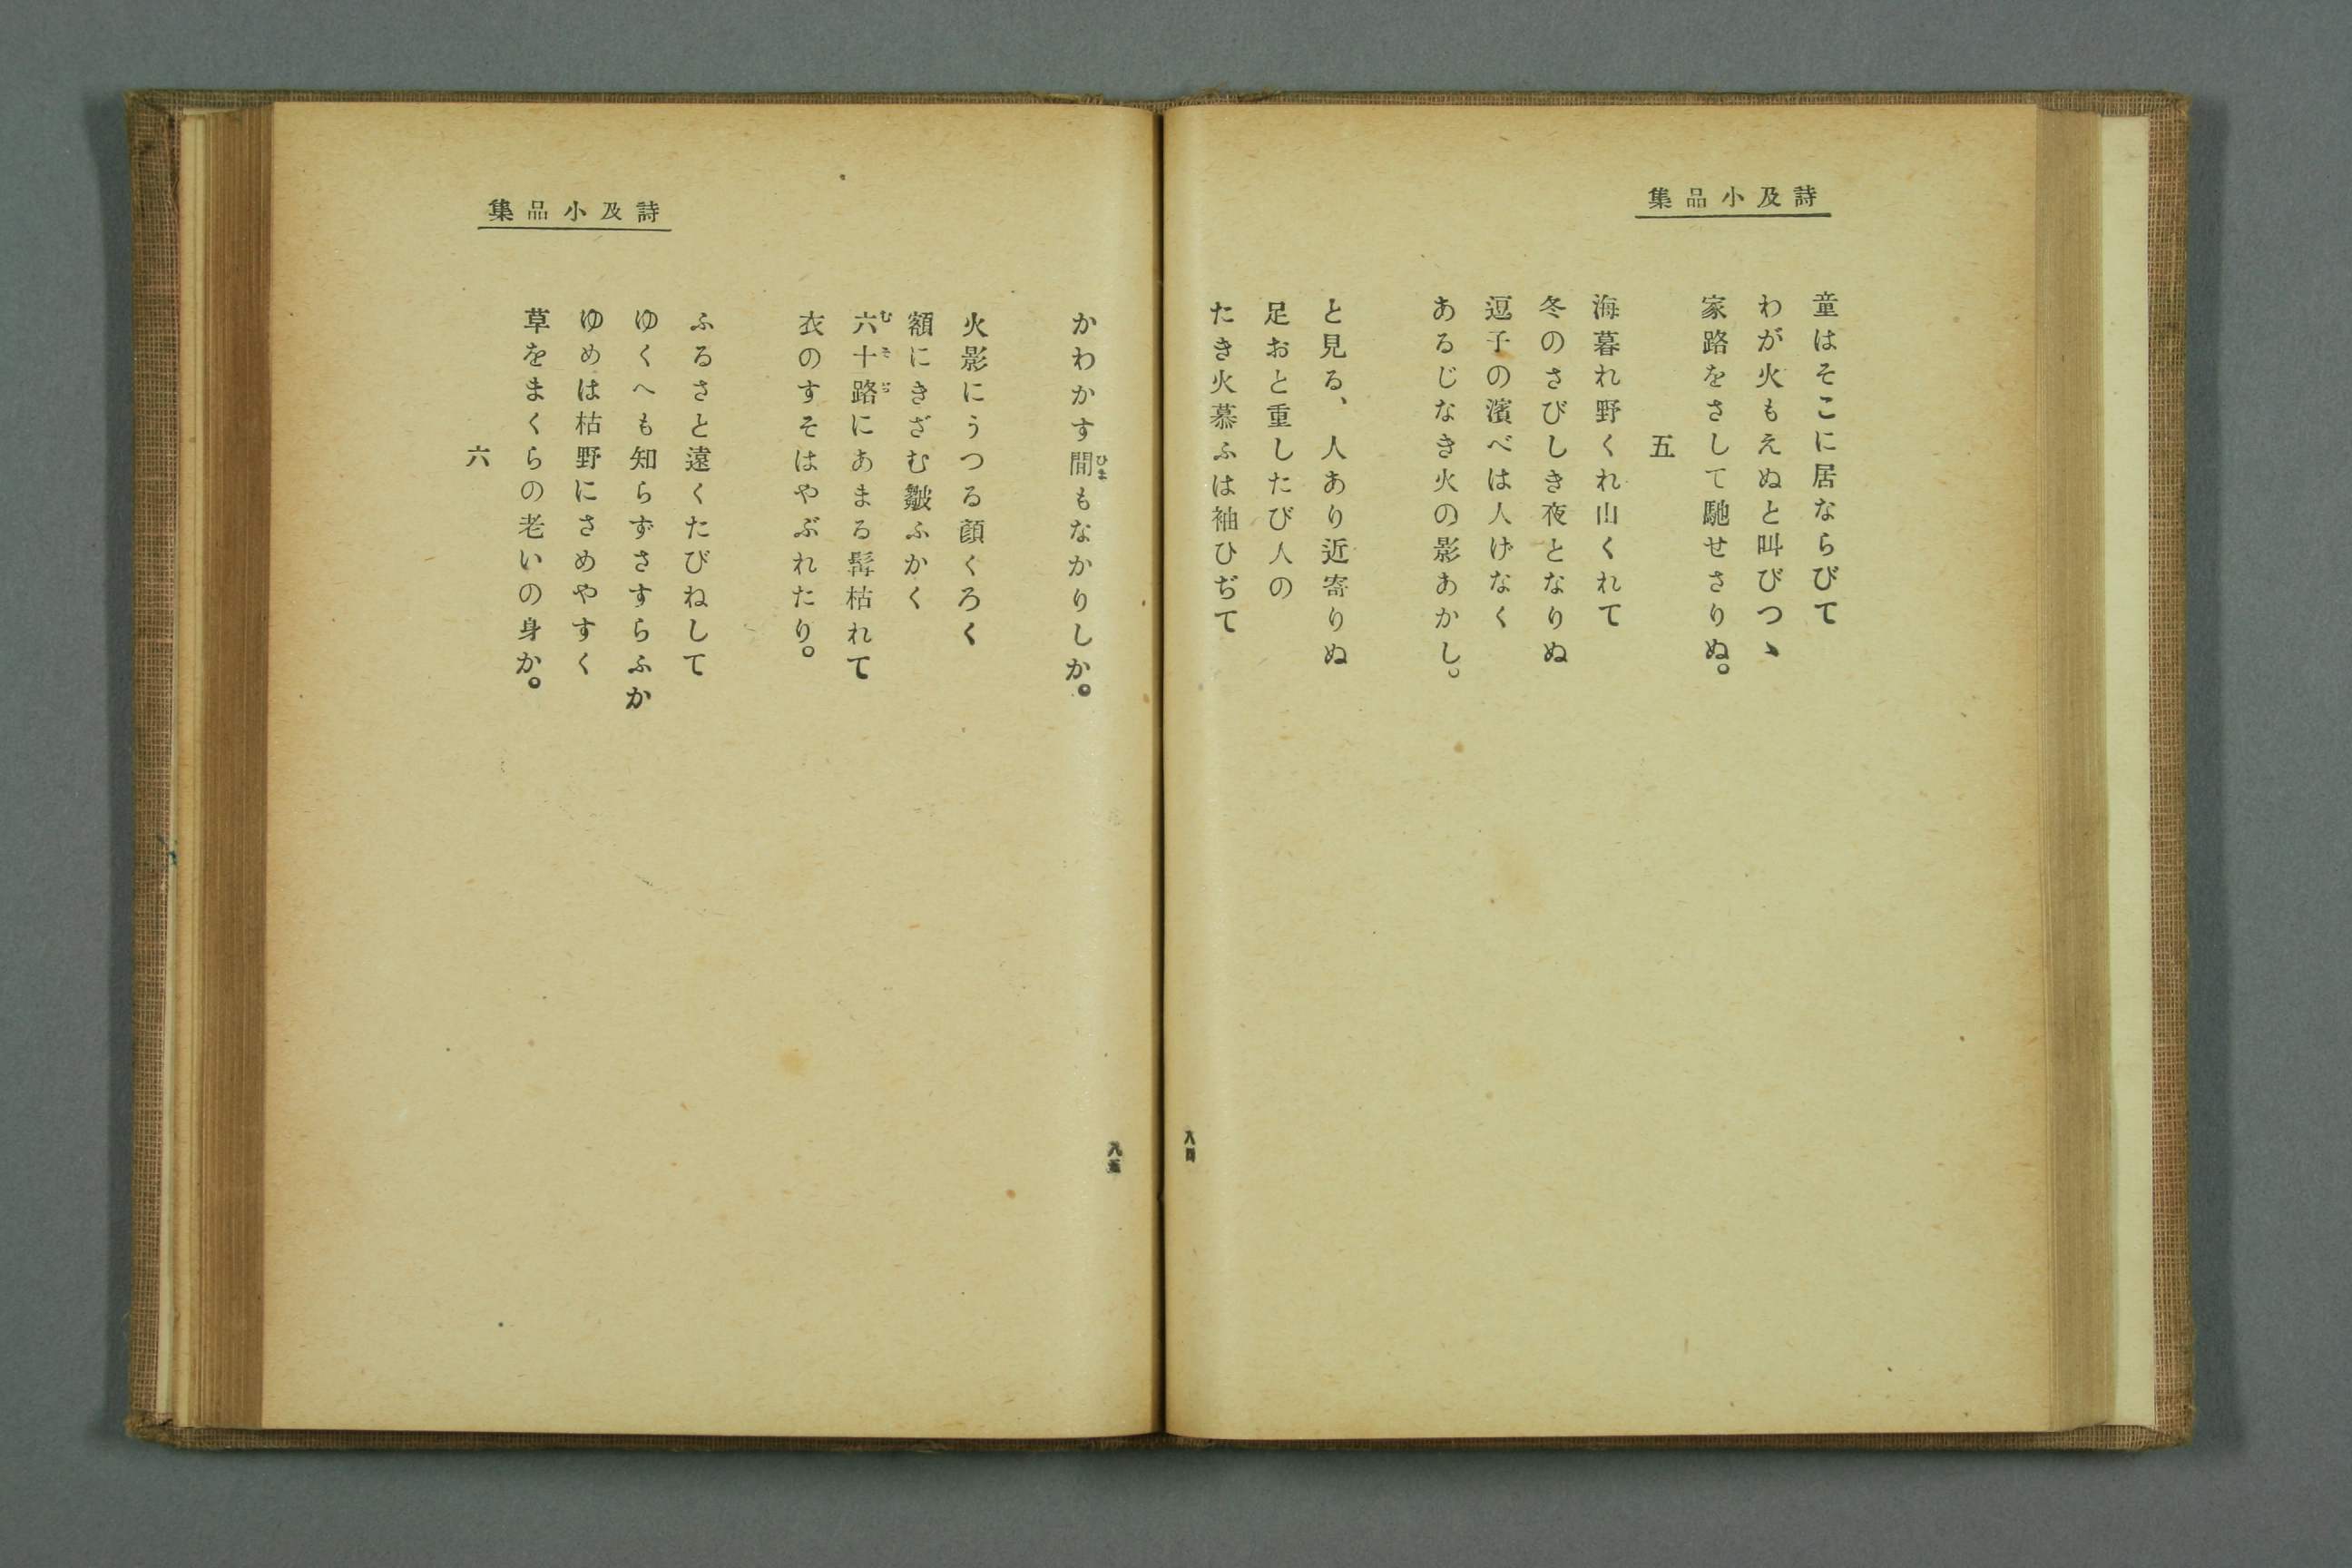 詩及小品集
童はそこに居ならびて
わが火もえぬと叫びつゝ
家路をさして馳せさりぬ。
五
海暮れ野くれ山くれて
冬のさびしき夜となりぬ
逗子の濱べは人げなく
あるじなき火の影あかし。
と見る、人あり近寄りぬ
足おと重したび人の
たき火慕ふは袖ひぢて
八四
詩及小品集
かわかす間もなかりしか。
ひま
火影にうつる顏くろく
額にきざむ皺ふかく
六十路にあまる髯枯れて
むそぢ
衣のすそはやぶれたり。
ふるさと遠くたびねして
ゆくへも知らずさすらふか
ゆめは枯野にさめやすく
草をまくらの老いの身か。
六
八五